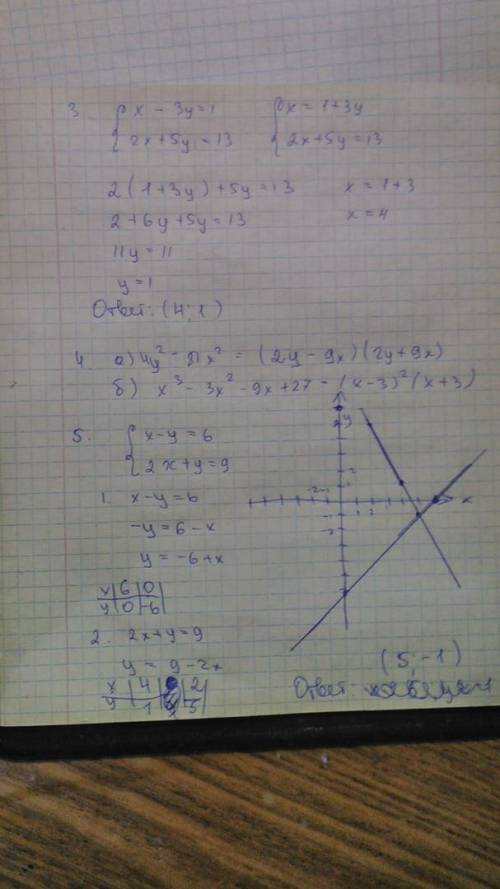 3. { x - 3y = 1   { x = 1+3y
{ 2x+5y = 13   { 2x+5y = 13
2(1+3y)+5y = 13   x = 1+3
2+6y+5y = 13   x = 4
11y = 11
y = 1
Ответ: (4; 1)
4 а) 4y² - 81x² = (2y - 9x)(2y+9x)
б) x³ - 3x² - 9x + 27 = (x-3)²(x+3)
5. { x-y = 6
{ 2x+y = 9
1. x-y = 6
-y = 6-x
y = -6+x
x | 6 | 0 |
y | 0 | -6 |
2. 2x+y = 9
y = 9-2x
x | 4 | 2 |
y | 1 | 5 |
y
2
1
-2 -1 1 2 x
-1
-2
(5; -1)
Ответ: